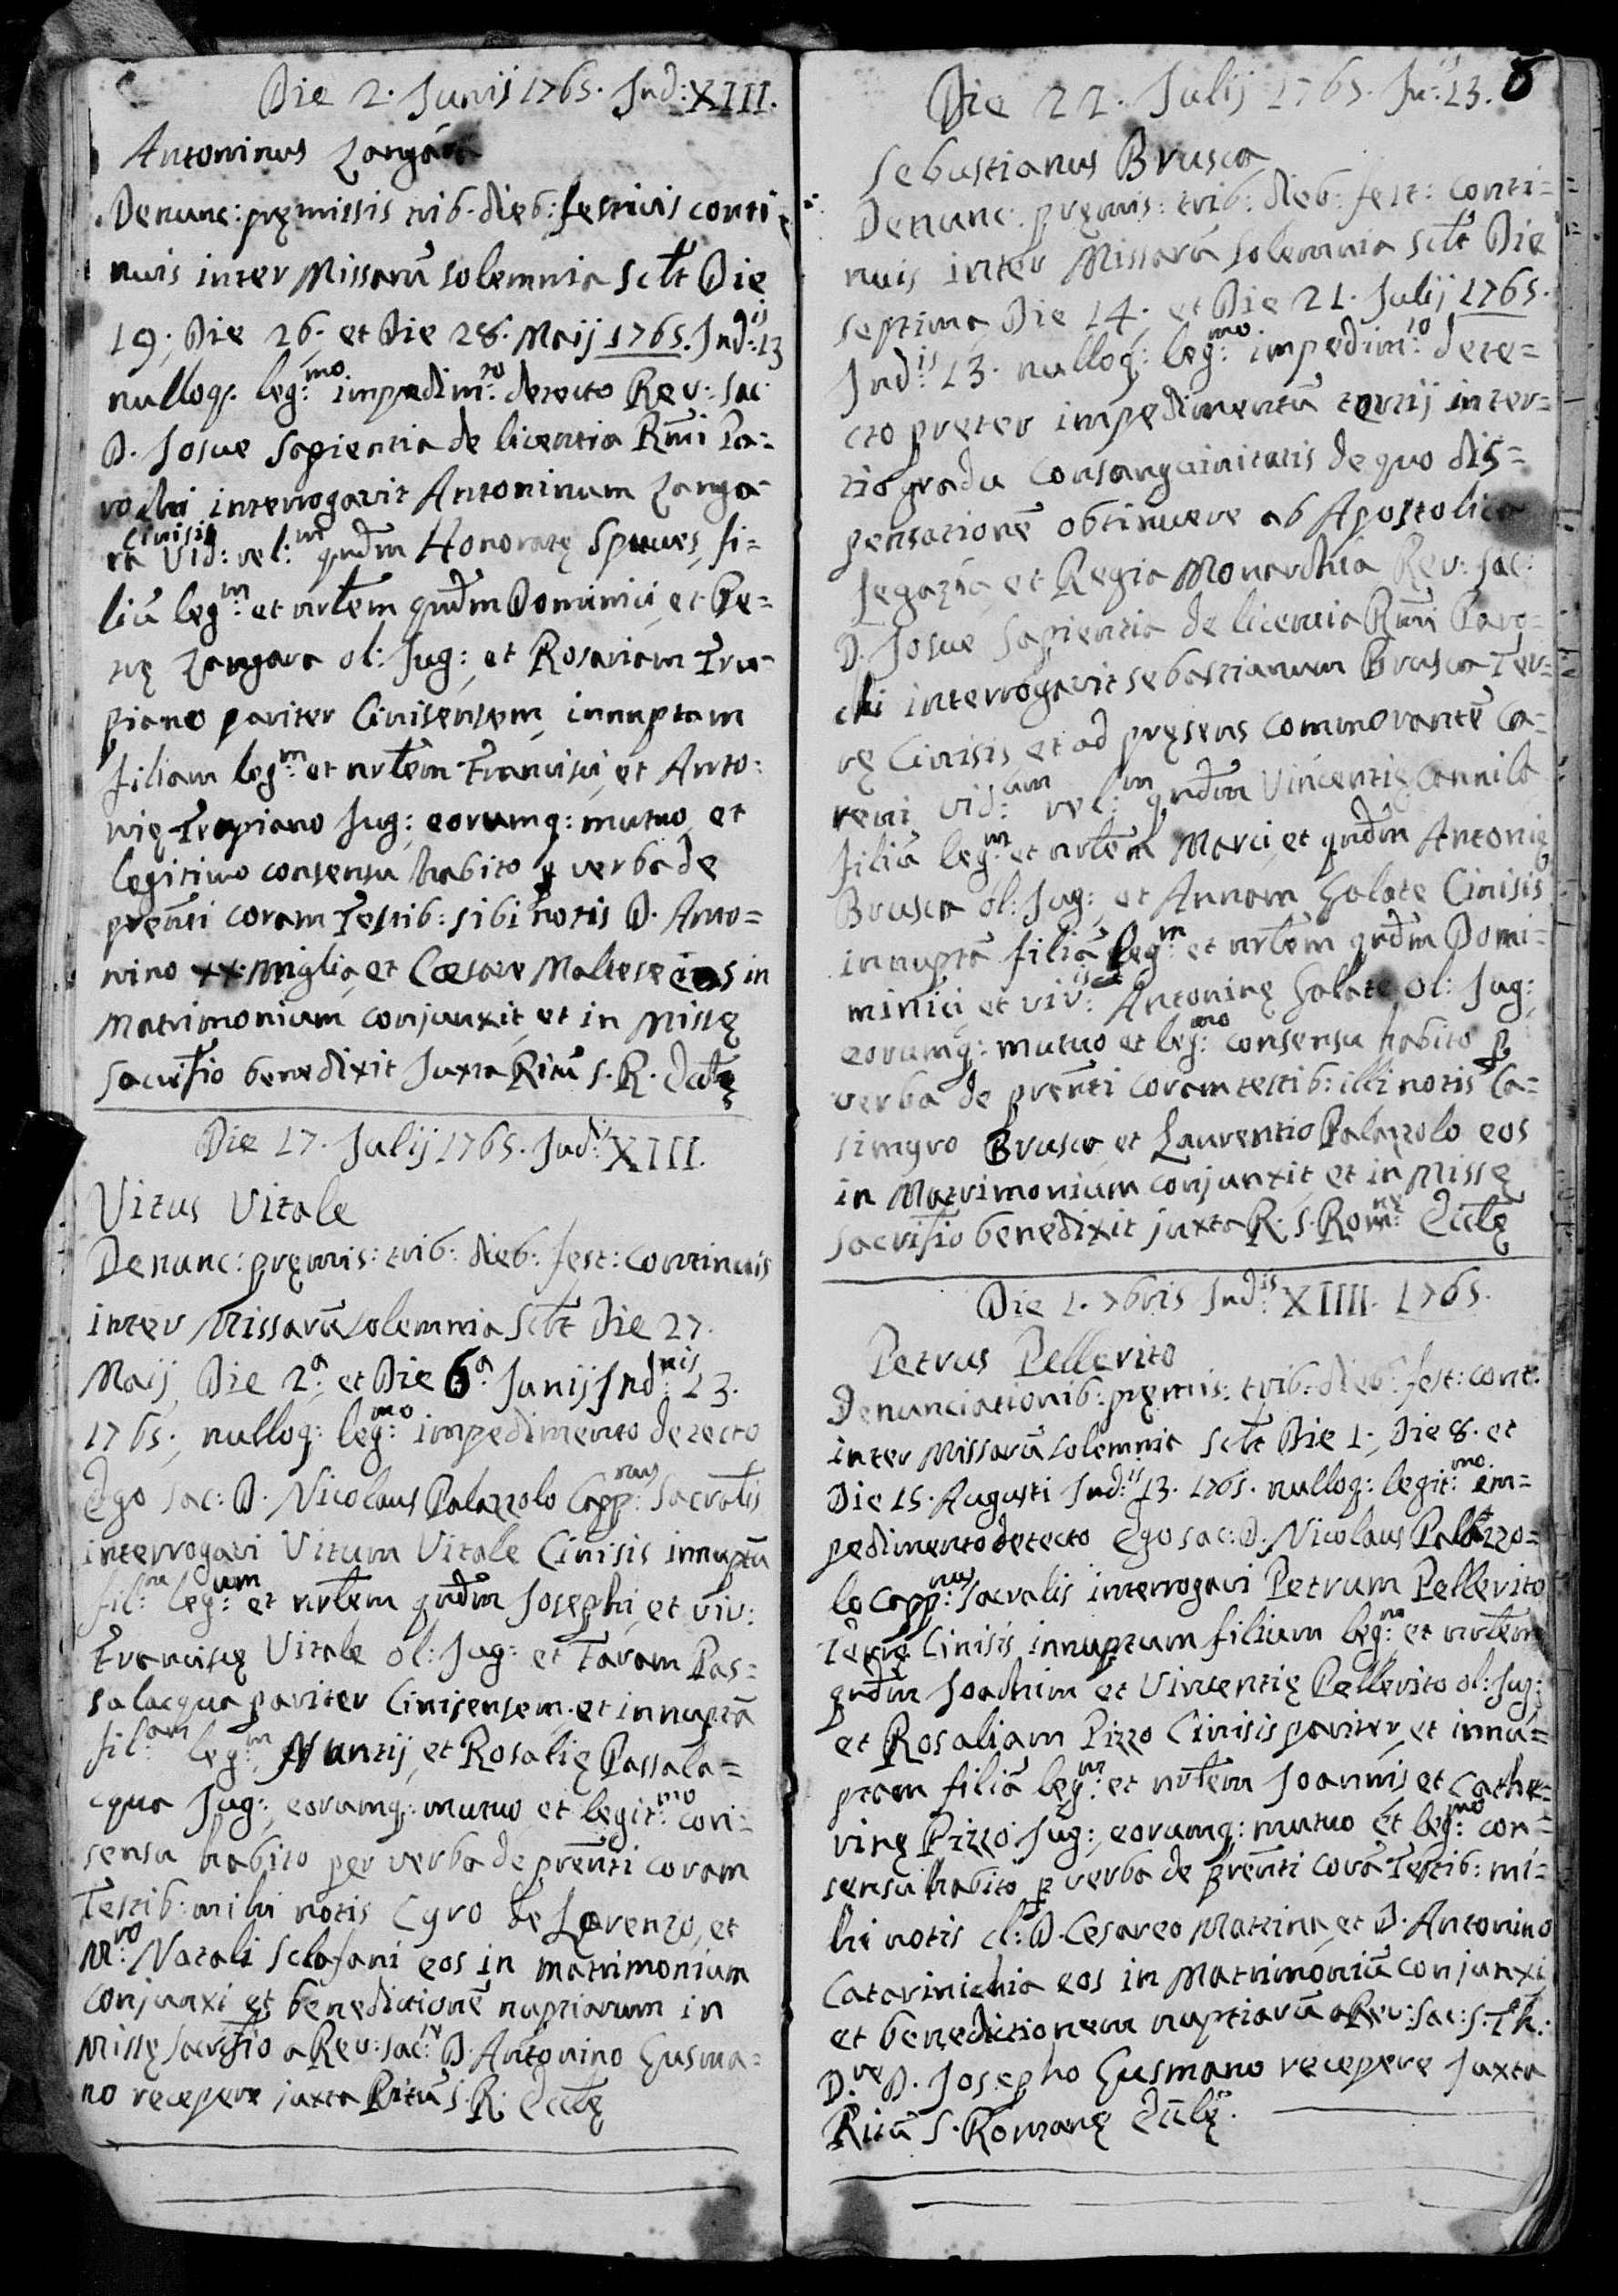 Die 2. Junij 1765. Ind: XIII.
Antoninus Zangara
Denunc: pręmissis trib. dieb: festivis conti=
nuis inter Missarũ solemnia sclt Die
19; Die 26; et Die 28. Maij 1765. Ind:is 13
nulloq; leg:mo impedim:to detecto Rev: Sac:
D. Josue Sapientia de licentia Rmi Pa=
rochi interrogavit Antoninum Zanga=
ra Cinisis Vid: rel:m qudm Honoratę Spuces, fi=
liũ leg:m et nrlem qudm Dominici, et Pe=
trę Zangara ol: Jug: et Rosariam Tru=
piano pariter Cinisensem, innuptam
filiam leg:m et nrlem Francisci, et Anto=
nię Trupiano Jug: eorumq: mutuo, et
legitimo consensu habito p verba de
prenti coram Testib: sibi notis D. Anto=
nino xx:miglia, et Cœsare Maltese eos in
Matrimonium conjunxit, et in Missę
Sacrifio benedixit Juxta Ritũ S. R. Ecclę
Die 17. Julij 1765. Ind: XIII.
Vitus Vitale
Denunc: pręmis: trib: dieb: fest: continuis
inter Missarũ solemnia sclt Die 27.
Maij, Die 2.a, et Die 6.a Junij Ind:nis 13.
1765; nulloq: leg:mo impedimento detecto
Ego Sac: D. Nicolaus Palazzolo Capp:nus Sacralis
interrogavi Vitum Vitale Cinisis innuptũ
fil: leg:um et nrlem qudm Josephi, et viv:
Franciscę Vitale ol: Jug: et Faram Pas=
salacqua pariter Cinisensem. et innuptã
fil:am leg:m Nuntij, et Rosalię Passala=
cqua Jug:, eorumq: mutuo et legit:mo con=
sensu habito per verba de prenti coram
Testib: mihi notis Cyro de Lorenzo, et
M:ro Natali Sclafani eos in matrimonium
conjunxi et benedictionẽ nuptiarum in
Missę Sacrifio a Rev: Sac: D. Antonino Gusma=
no recepere juxta Ritũ S. R. Ecclę
8
Die 22. Julij 1765. In:is 13.
Sebastianus Brusca
Denunc: pręmis: trib: dieb: fest: conti=
nuis inter Missarũ solemnia sclt Die
septima, Die 14; et Die 21. Julij 1765.
Ind:is 13. nulloq: leg:mo impedim:to dete=
cto pręter impedimentũ tertij inter=
tio gradu Consanguinitatis de quo dis=
pensationẽ obtinuere ab Apostolica
Legazia et Regia Monarchia Rev: Sac:
D. Josue Sapientia de licentia Rmi Paro=
chi interrogavit Sebastianum Brusca Ter=
rę Cinisis et ad pręsens commorantẽ Ca=
reni vid:um rel:m qudm Vincentię Cannila
filiũ leg:m et nrlem Marci, et qudm Antonię
Brusca ol: Jug:, et Annam Galate Cinisis
innuptã filiã leg:m et nrlem qudm Domi=
minici, et viv: Antoninę Galate ol: Jug:
eorumq: mutuo et leg:mo consensu habito p
verba de prenti coram testib: illi notis Ca=
simyro Brusca, et Laurentio Palazzolo eos
in Matrimonium conjunxit, et in Missę
Sacrifio benedixit juxta R. S. Rom:nę Ecclę
Die 1. 7bris Ind:is XIIII. 1765.
Petrus Pellerito
Denunciationib: pręmis: trib: dieb: fest: cont:
inter Missarũ solemnia sclt Die 1; Die 8. et
Die 15. Augusti Ind:is 13. 1765. nulloq: legit:mo im=
pedimento detecto Ego Sac: D. Nicolaus Palazzo=
lo Capp:nus Sacralis interrogavi Petrum Pellerito
Terrę Cinisis innuptum filium leg:m et nrlem
qudm Joachim et Vincentię Pellerito ol: Jug:
et Rosaliam Pizzo Cinisis pariter, et innu=
ptam filiã leg:m et nrlem Joannis et Cathe=
rinę Pizzo Jug:, eorumq: mutuo et leg:mo con=
sensu habito p verba de prenti corã Testib: mi=
hi notis Cl: D. Cesareo Mattina, et D. Antonino
Catarinichia eos in Matrimoniũ conjunxi,
et benedictionem nuptiarũ a Rev: Sac: S. Th:
D.re D. Josepho Gusmano recepere Juxta
Ritũ S. Romanę Ecclę.